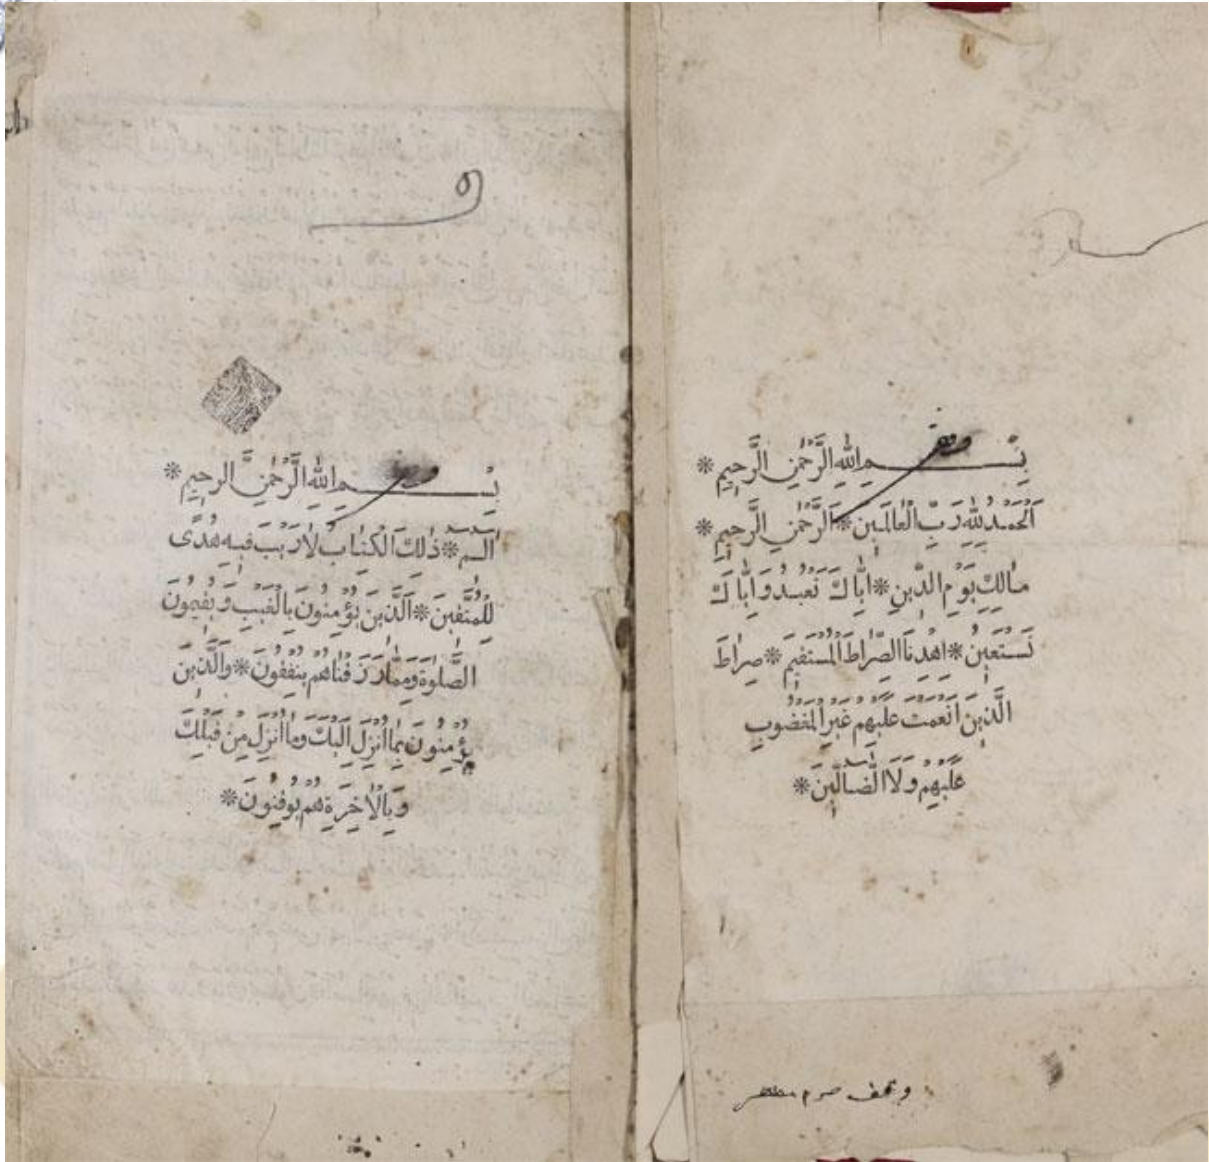 بِسْمِ اللهِ الرَّحْمٰنِ الرَّحِيمِ *
اَلْحَمْدُ لِلّٰهِ رَبِّ الْعَالَمِينَ * اَلرَّحْمٰنِ الرَّحِيمِ *
مَالِكِ يَوْمِ الدِّينِ * اِيَّاكَ نَعْبُدُ وَاِيَّاكَ
نَسْتَعِينُ * اِهْدِنَا الصِّرَاطَ الْمُسْتَقِيمَ * صِرَاطَ
الَّذِينَ اَنْعَمْتَ عَلَيْهِمْ غَيْرِ الْمَغْضُوبِ
عَلَيْهِمْ وَلَا الضَّالِّينَ *
وقف حرم مطهر
بِسْمِ اللهِ الرَّحْمٰنِ الرَّحِيمِ *
الٓمٓ * ذٰلِكَ الْكِتَابُ لَا رَيْبَ فِيهِ هُدًى
لِلْمُتَّقِينَ * اَلَّذِينَ يُؤْمِنُونَ بِالْغَيْبِ وَيُقِيمُونَ
الصَّلٰوةَ وَمِمَّا رَزَقْنَاهُمْ يُنْفِقُونَ * وَالَّذِينَ
يُؤْمِنُونَ بِمَا اُنْزِلَ اِلَيْكَ وَمَا اُنْزِلَ مِنْ قَبْلِكَ
وَبِالْاٰخِرَةِ هُمْ يُوقِنُونَ *